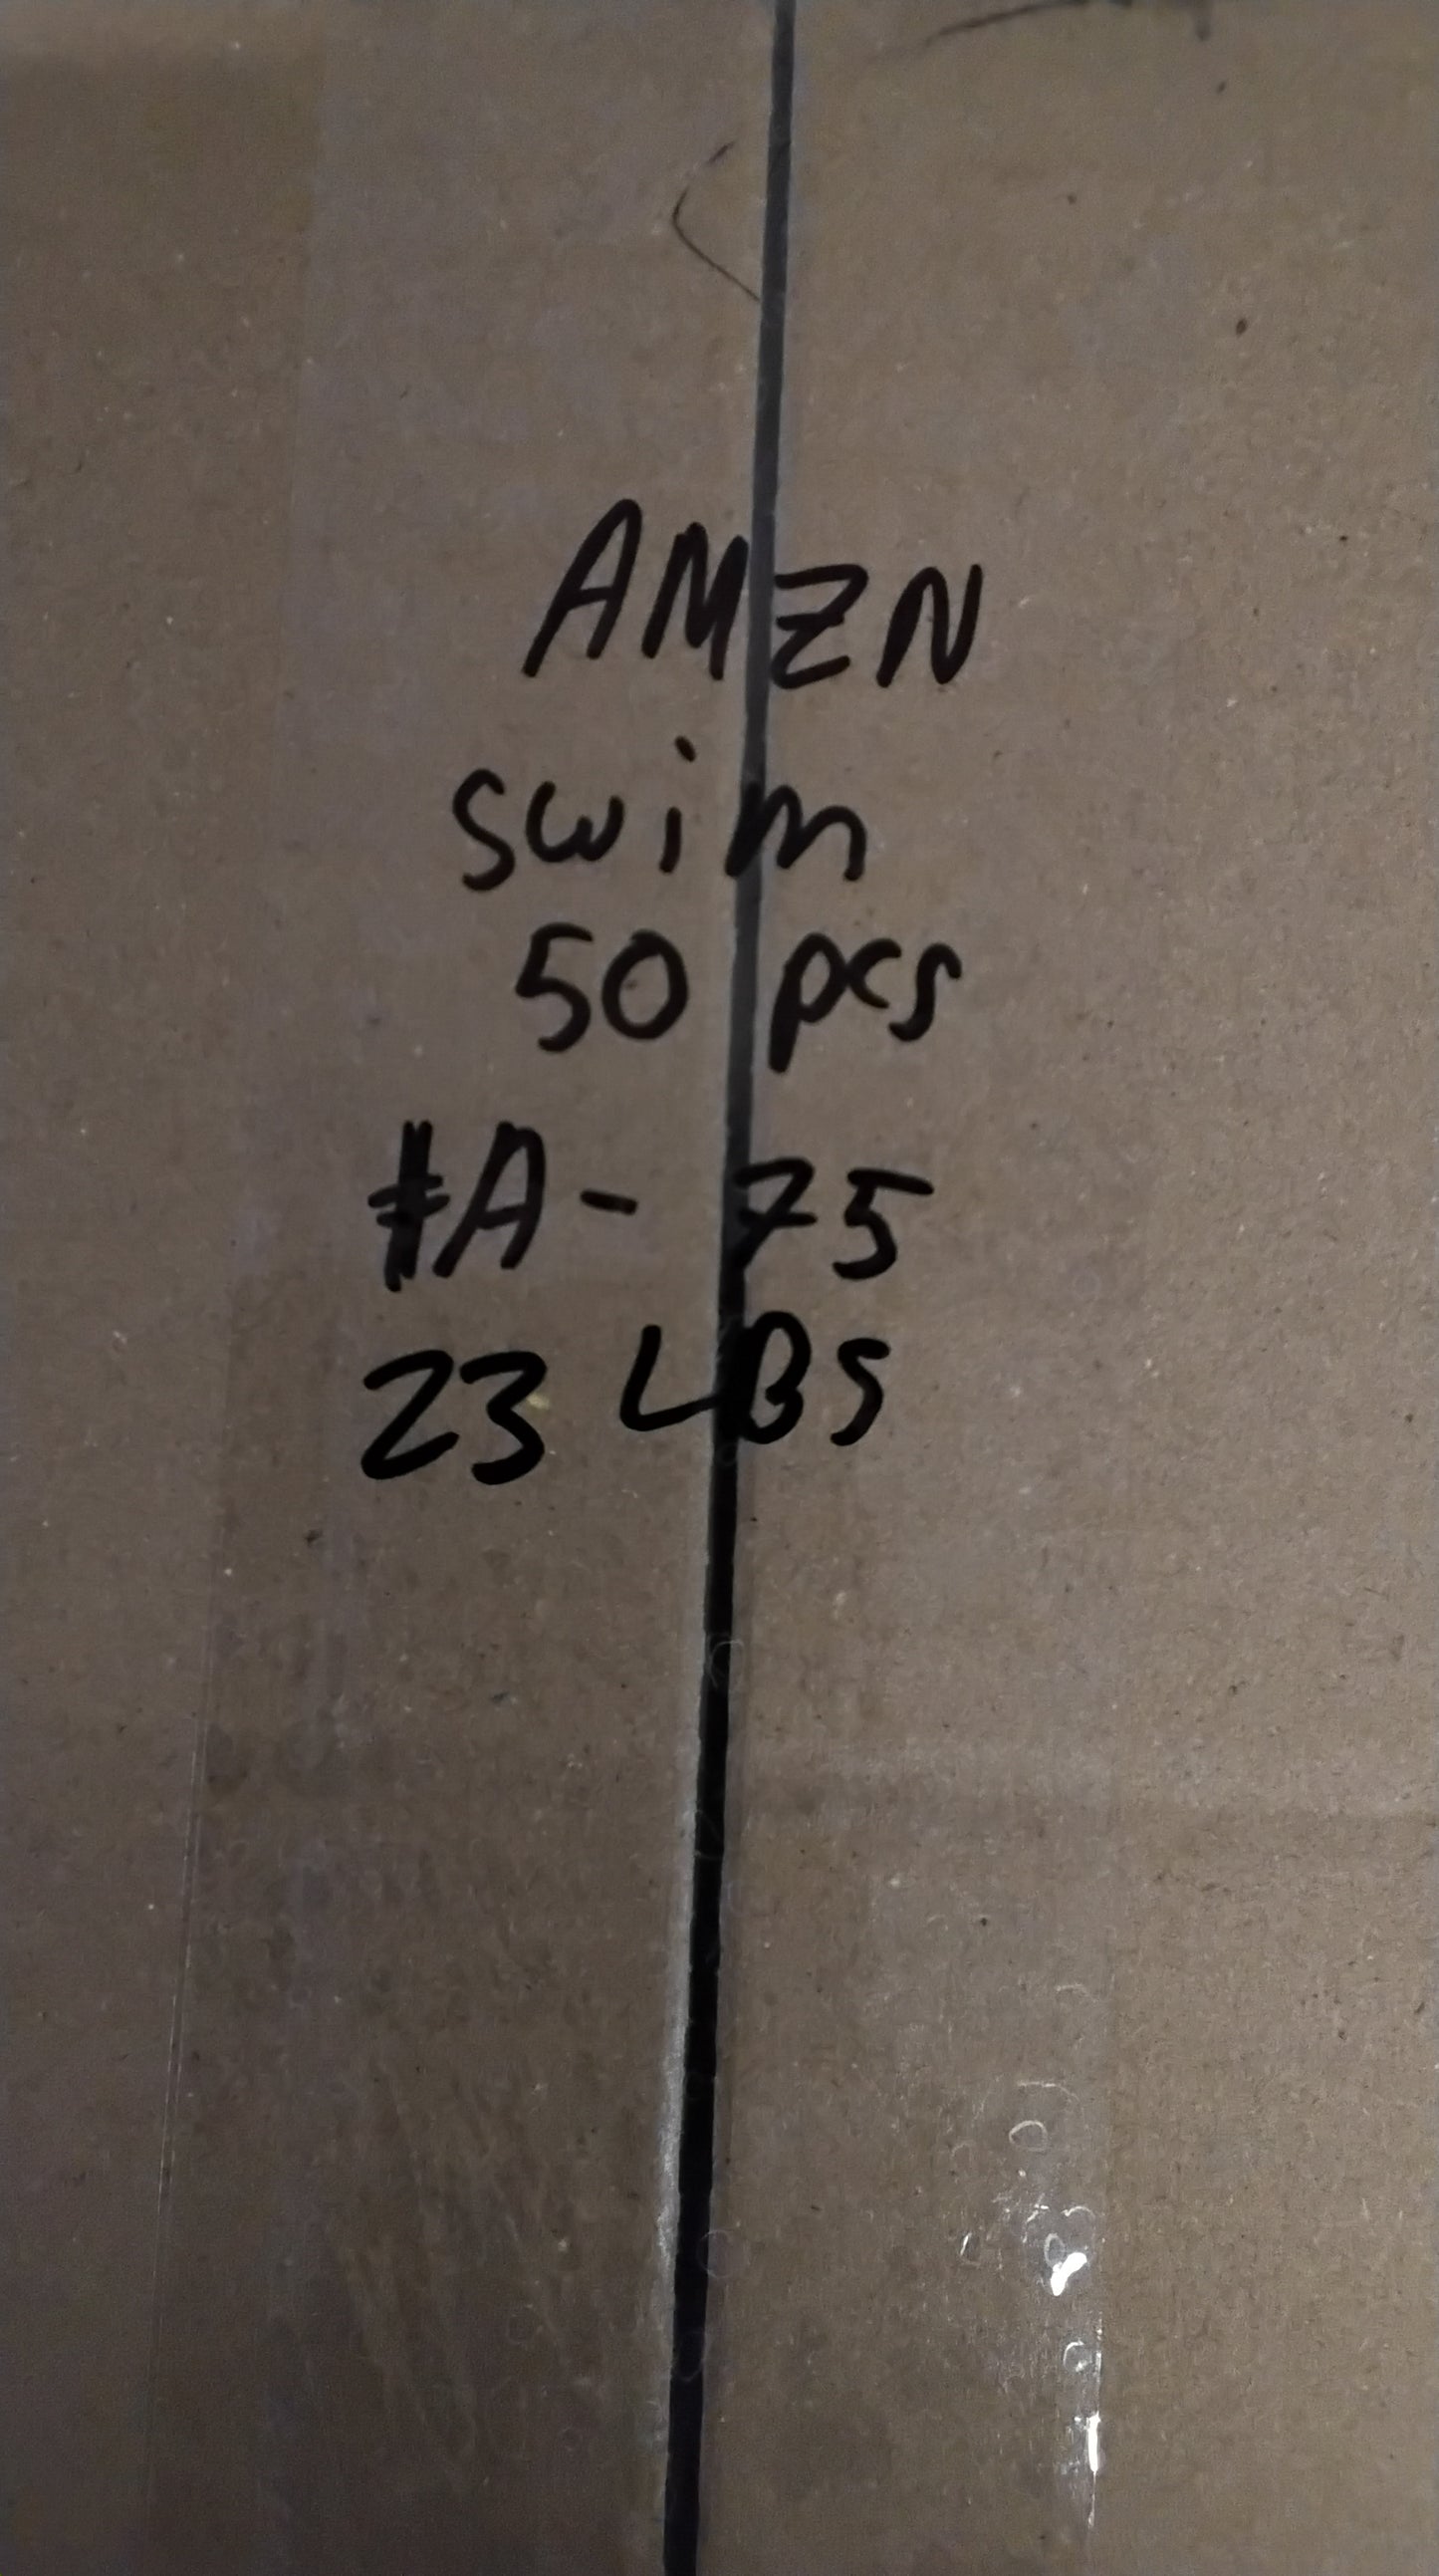 AMZN
swim
50 pcs
#A-75
23 LBS